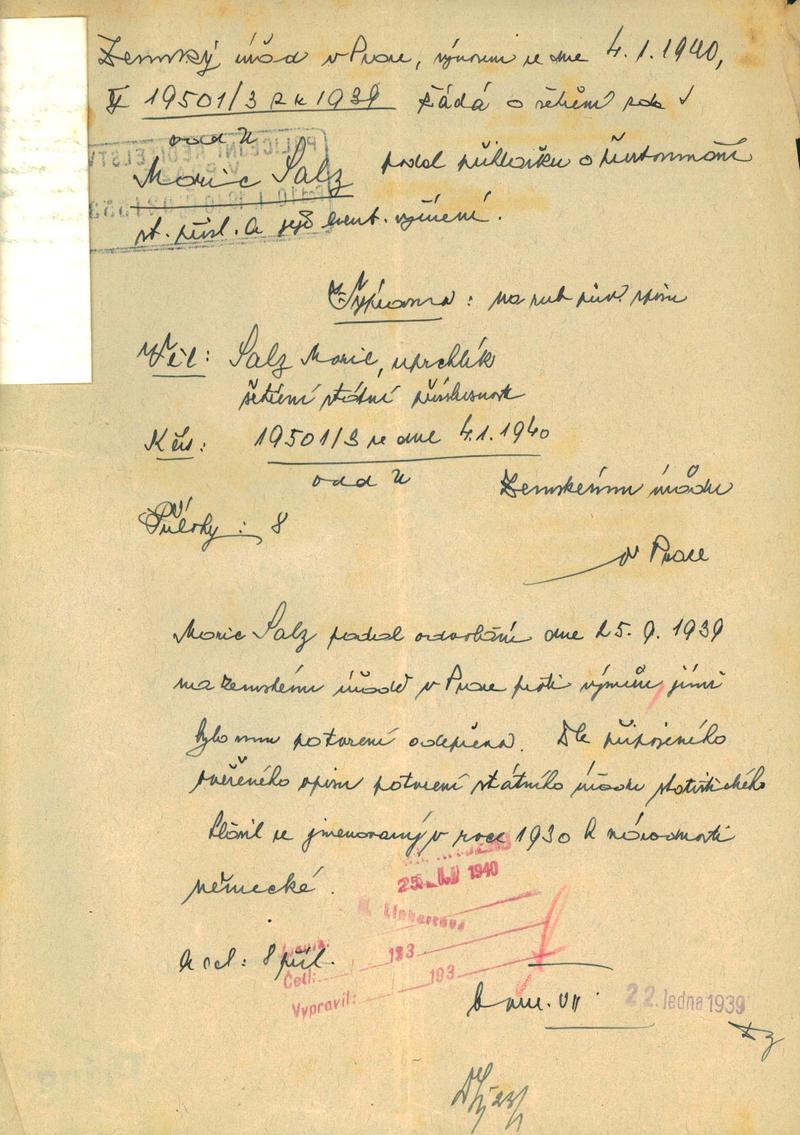 Zemský úřad v Praze, výnosem ze dne 4.1.1940,
19501/3 z r. 1939 žádá o šetření zda
odd
Moric Salz podal přihlášku o přezkoumání
st. přísl. a její event. vyřízení.
Výprava: na rub pův. spisu
Věc: Salz Moric, uprchlík
šetření státní příslušnosti
K čís: 19501/3 ze dne 4.1.1940
odd
Zemskému úřadu
Přílohy: 8
v Praze
Moric Salz podal odvolání dne 25. 9. 1939
na zemském úřadě v Praze proti výměru, jímž
bylo mu potvrzení odepřeno. Dle připojeného
ověřeného opisu potvrzení státního úřadu statistického
hlásil se jmenovaný v roce 1930 k národnosti
německé.
25. 1940
M. Linhartová
8 příl.
193
Četl: 193
Vypravil:
odd. VII
22. ledna 1939
23/1